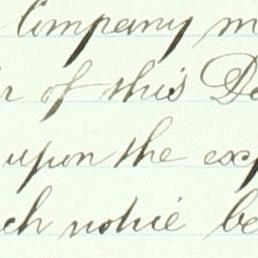 Company m
r of this De
upon the exp
ch notice be